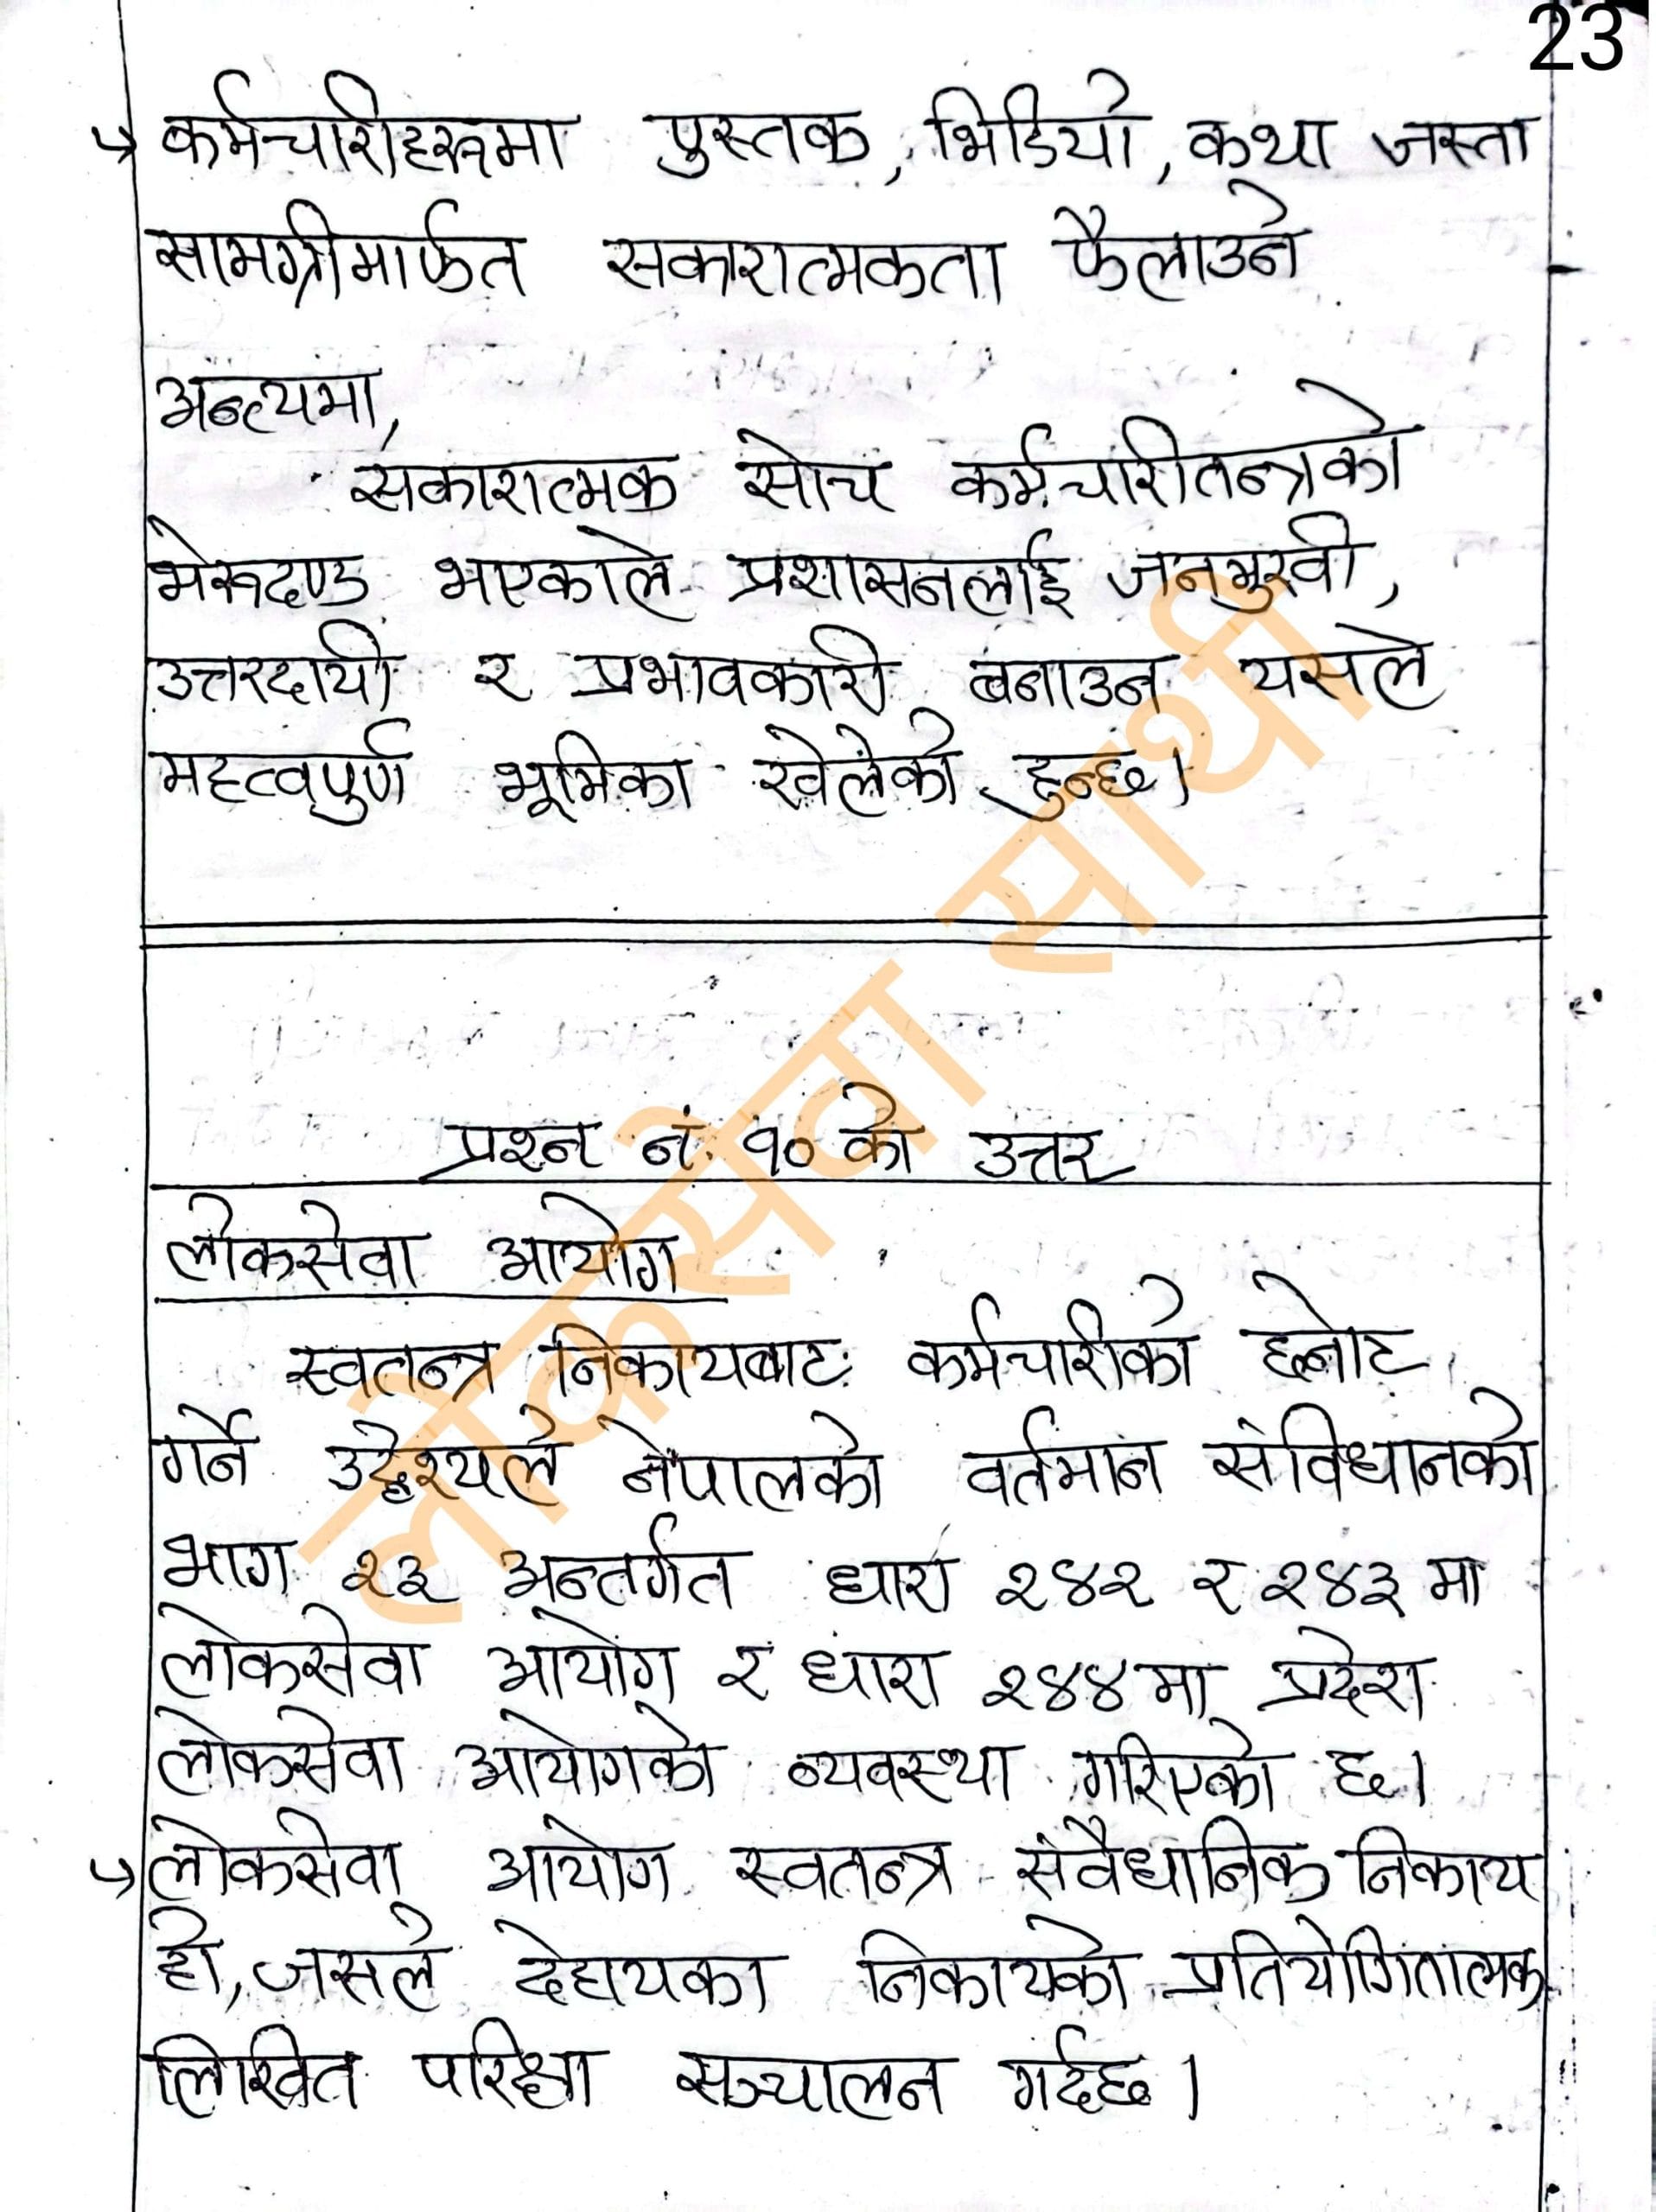 23
↳ कर्मचारीहरूमा पुस्तक, भिडियो, कथा जस्ता
सामग्रीमार्फत सकारात्मकता फैलाउने
अन्त्यमा,
सकारात्मक सोच कर्मचारीतन्त्रको
मेरूदण्ड भएकाले प्रशासनलाई जनमुखी,
उत्तरदायी र प्रभावकारी बनाउन यसले
महत्वपुर्ण भूमिका खेलेको हुन्छ।
प्रश्न नं. १० को उत्तर
लोकसेवा आयोग
स्वतन्त्र निकायबाट कर्मचारीको छनोट
गर्ने उद्देश्यले नेपालको वर्तमान संविधानको
भाग २३ अन्तर्गत धारा २४२ र २४३ मा
लोकसेवा आयोग र धारा २४४ मा प्रदेश
लोकसेवा आयोगको व्यवस्था गरिएको छ।
↳ लोकसेवा आयोग स्वतन्त्र संवैधानिक निकाय
हो, जसले देहायका निकायको प्रतियोगितात्मक
लिखित परिक्षा सञ्चालन गर्दछ।
लोकसेवा साथी